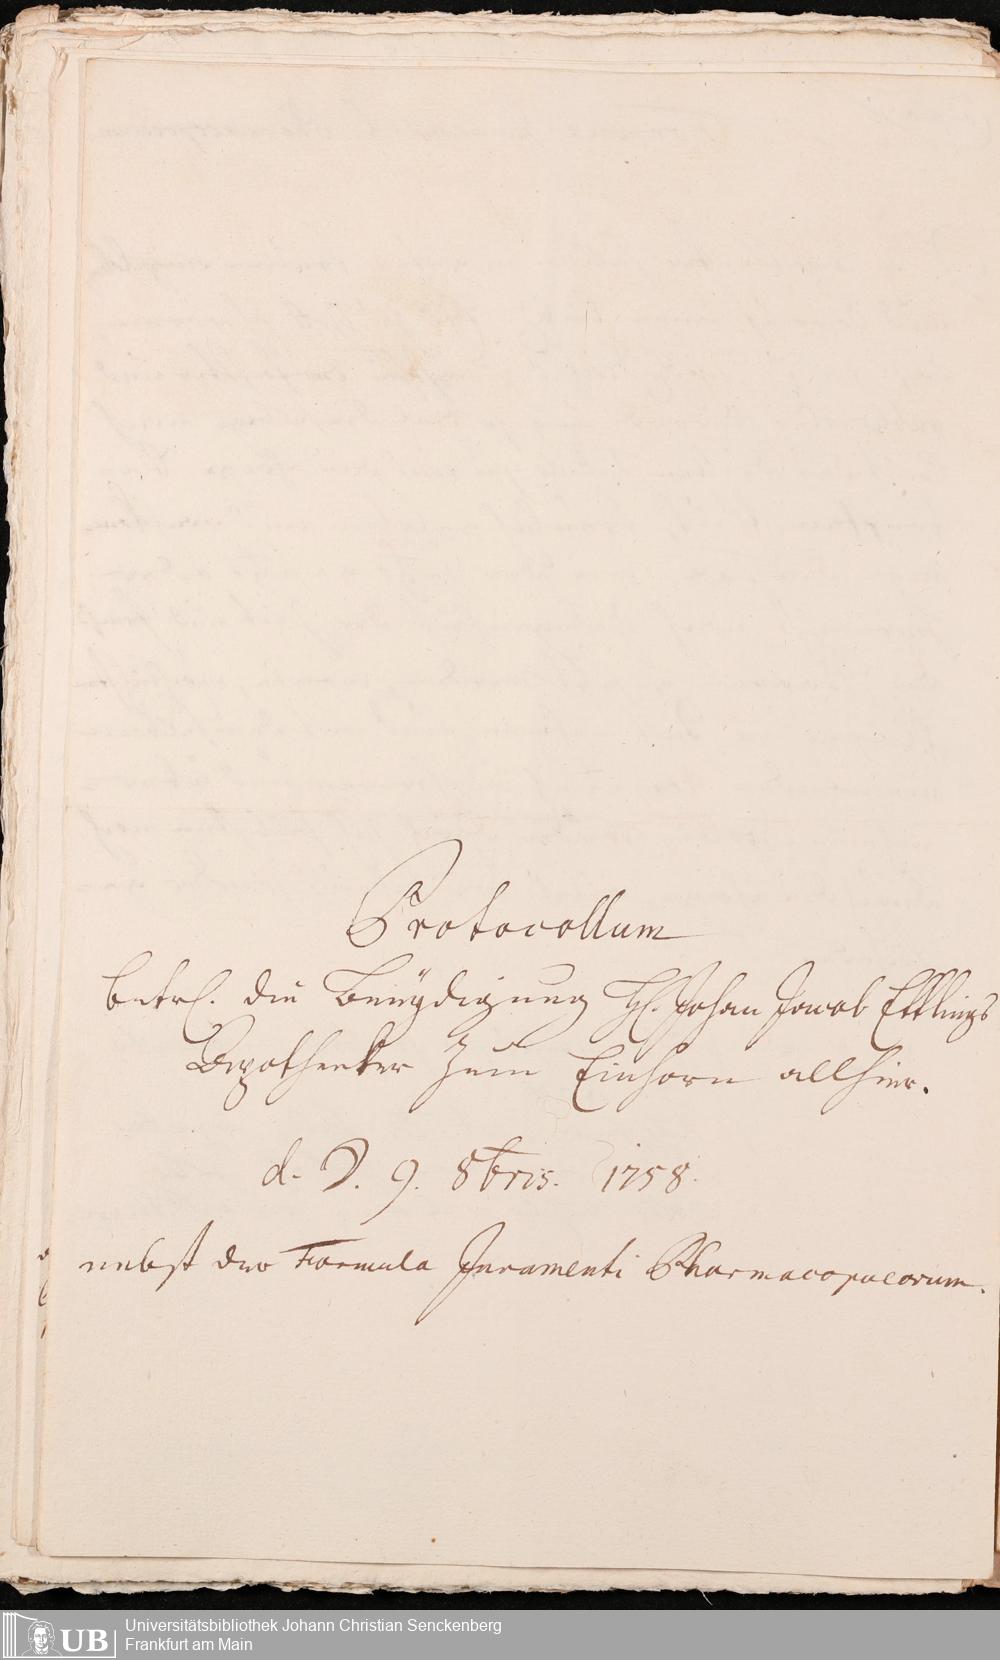 Protocollum
betrf. die Beeÿdigung H. Johan Jacob Ettlings
Apothecker zum Einhorn allhier.
d. D. 9. 8bris. 1758.
nebst der Formula Juramenti Pharmacopoeorum.
Universitätsbibliothek Johann Christian Senckenberg
UB Frankfurt am Main